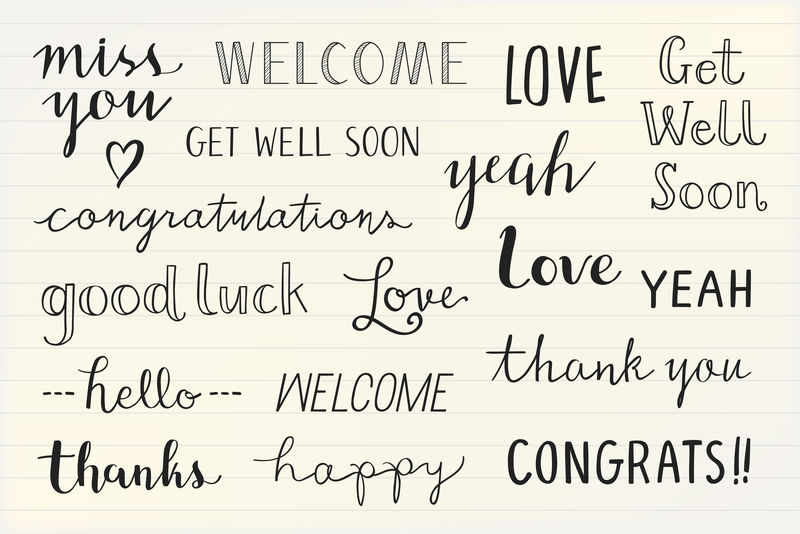 miss
you
WELCOME
LOVE
Get
Well
Soon
GET WELL SOON
yeah
congratulations
Love
good luck
Love
YEAH
thank you
---hello---
WELCOME
thanks
happy
CONGRATS!!